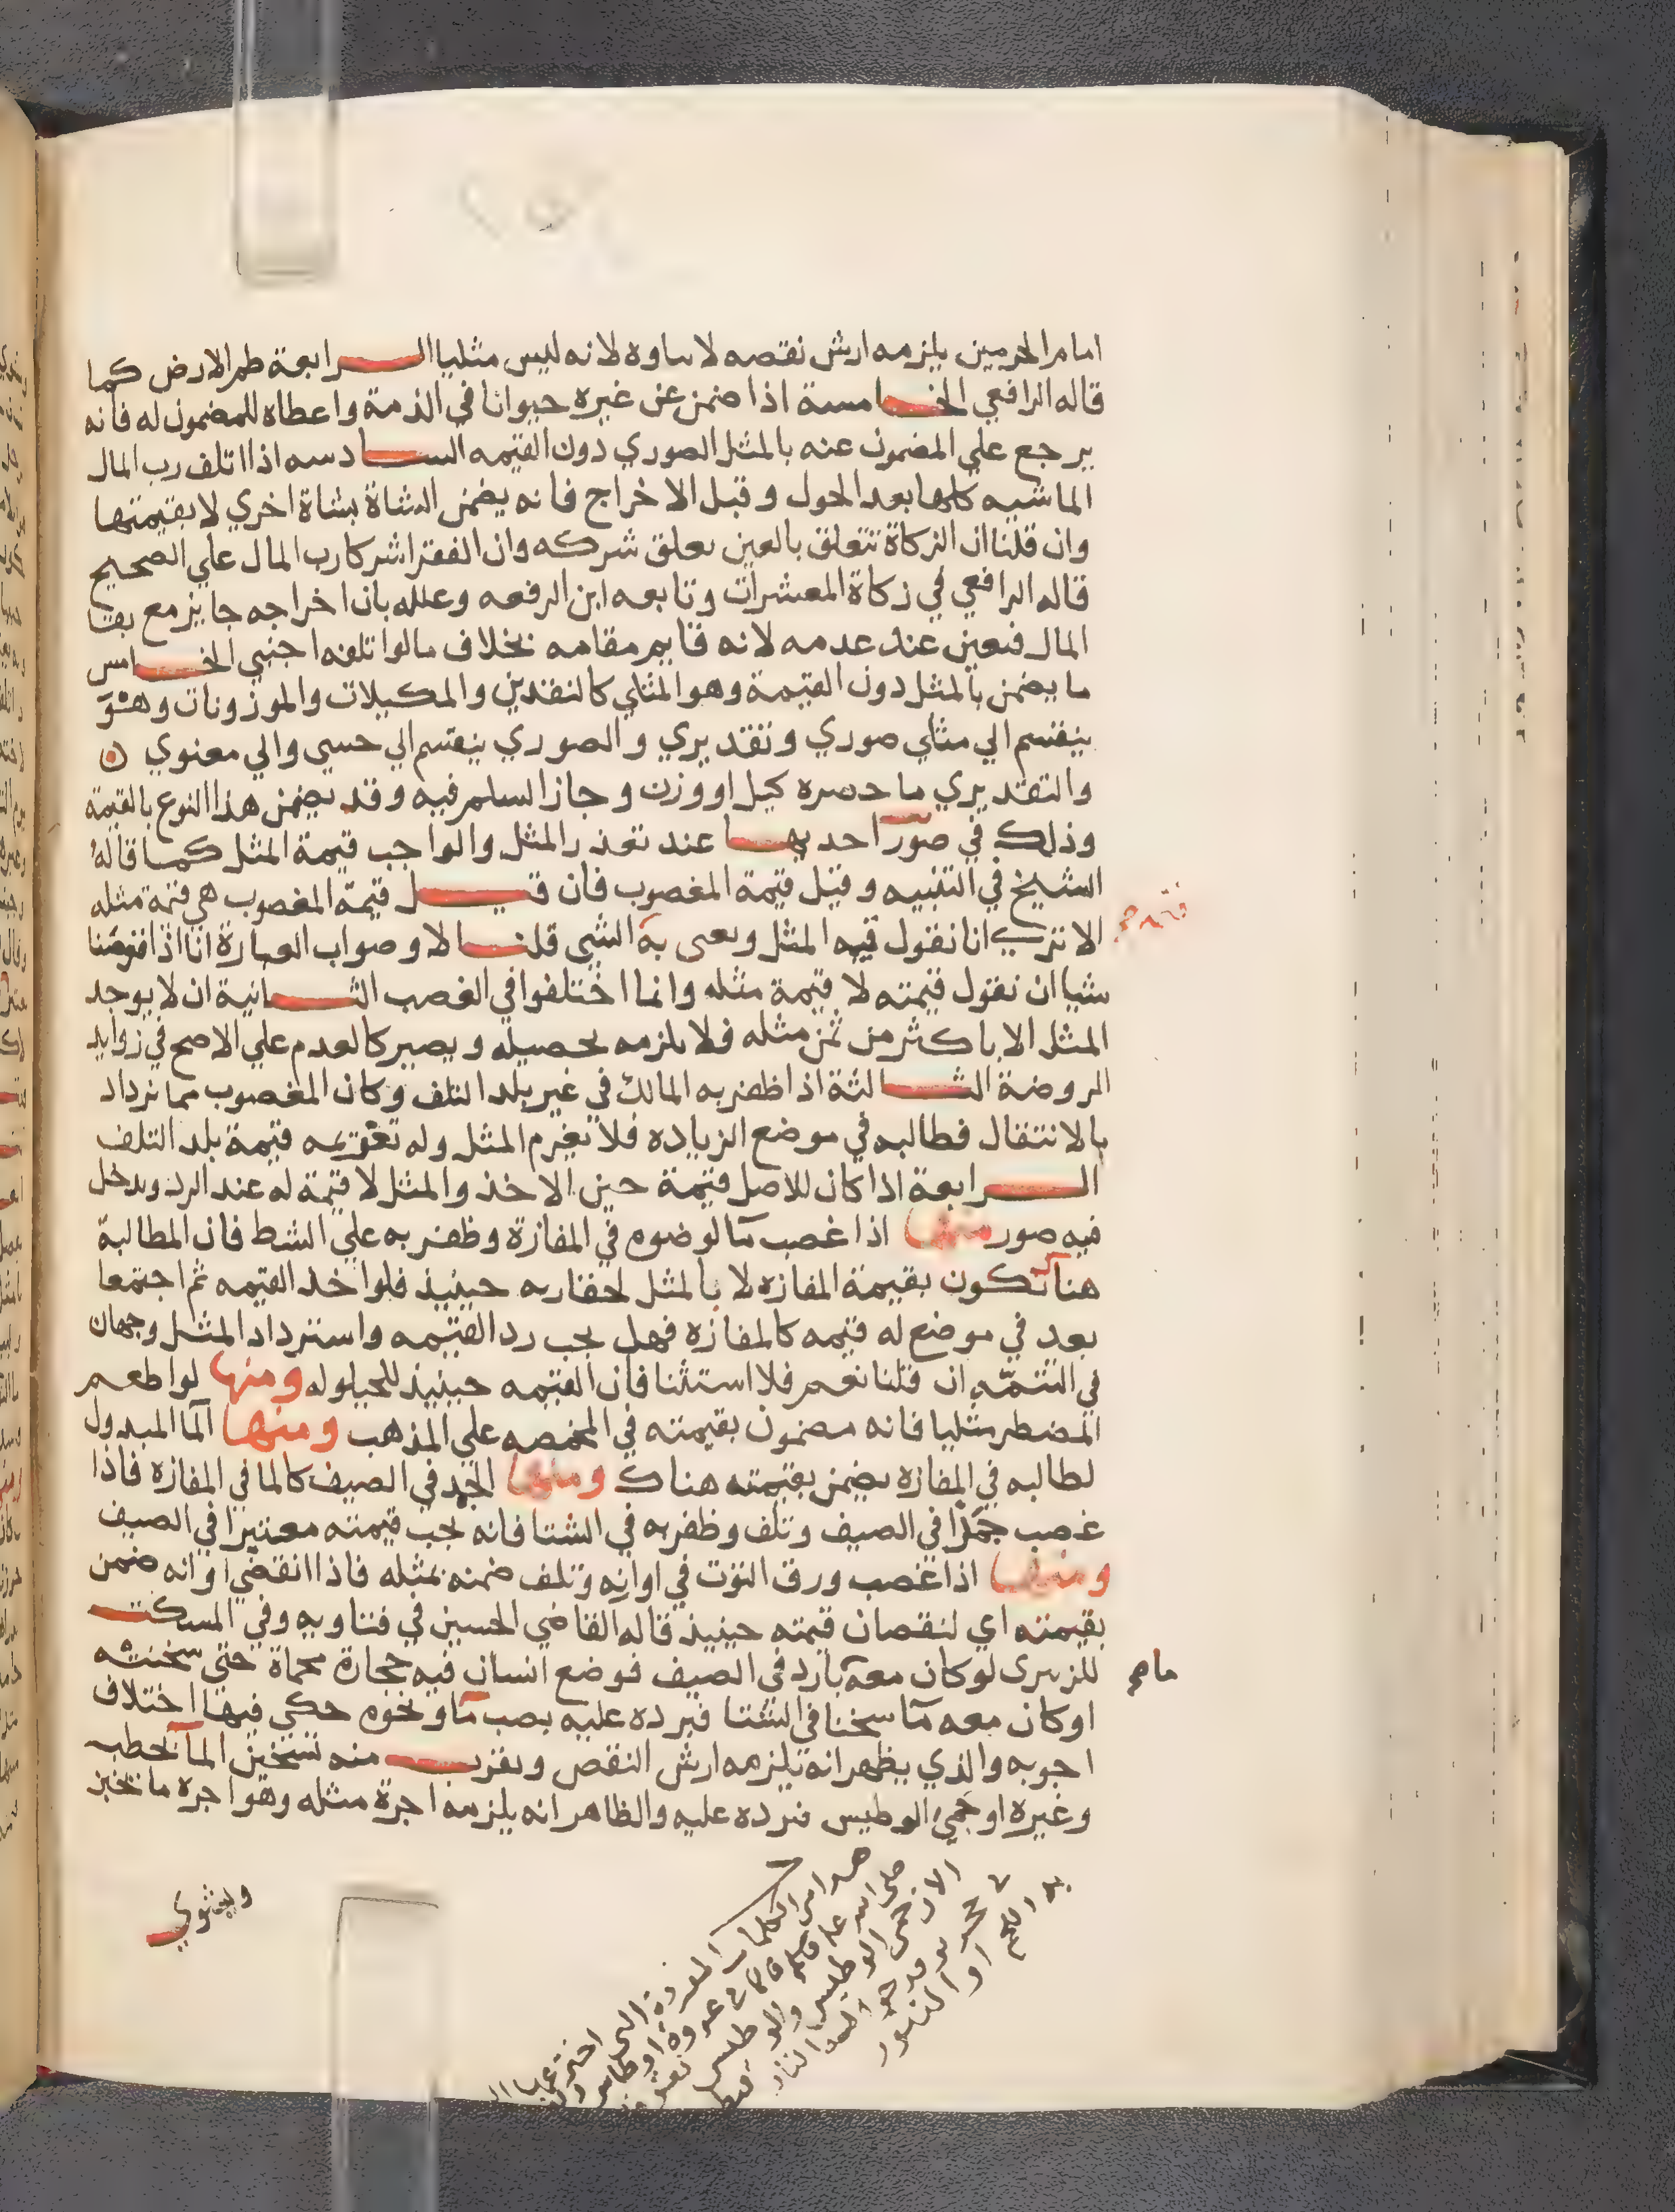 امام الحرمين يلزمه ارش نقصه لا ساوه لانه ليس مثليا الرابعة طم الارض كما
قاله الرافعي الخامسة اذا ضمن عن غيره حيوانا في الذمة واعطاه للمضمون له فانه
يرجع علي المضمون عنه بالمثل الصوري دون القيمه السادسه اذا اتلف رب المال
الماشيه كلها بعد الحول وقبل الاخراج فانه يضمن الشاة بشاة اخري لا بقيمتها
وان قلنا ان الزكاة تتعلق بالعين تعلق شركه وان الفقرا شركا رب المال علي الصحيح
قاله الرافعي في زكاة المعشرات وتابعه ابن الرفعه وعلله بان اخراجه جايز مع بقا
المال فتعين عند عدمه لانه قايم مقامه بخلاف ما لو اتلفه اجنبي الخامس
ما يضمن بالمثل دون القيمة وهو المثلي كالنقدين والمكيلات والموزونات وهو
ينقسم الي مثلي صوري وتقديري والصوري ينقسم الي حسي والي معنوي
والتقديري ما حصره كيل او وزن وجاز السلم فيه وقد يضمن هذا النوع بالقيمة
وذلك في صور احديها عند تعذر المثل والواجب قيمة المثل كما قاله
الشيخ في التنبيه وقيل قيمة المغصوب فان قيل قيمة المغصوب هي قيمة مثله
الا تري انا نقول فيه المثل ويعني به الشي قلنا لا وصواب العبارة انا اذا قومنا
شيا ان نقول قيمته لا قيمة مثله وانما اختلفوا في الغصب الثانية ان لا يوجد
المثل الا باكثر من ثمن مثله فلا يلزمه تحصيله ويصير كالعدم علي الاصح في زوايد
الروضة الثالثة اذا ظفر به المالك في غير بلد التلف وكان المغصوب مما تزداد
بالانتقال فطالبه في موضع الزياده فلا يغرم المثل وله تغريمه قيمة بلد التلف
الرابعة اذا كان للاصل قيمة حين الاخذ والمثل لا قيمة له عند الرد ويدخل
فيه صور منها اذا غصب مآ لوضوء في المفازة وظفر به علي الشط فان المطالبة
هنا تكون بقيمة المفازه لا بالمثل لحقارته حينيذ فلو اخذ القيمه ثم اجتمعا
بعد في موضع له قيمه كالمفازه فهل يجب رد القيمه واسترداد المثل وجهان
في التتمه ان قلنا نعم فلا استثنا فان القيمه حينيذ للحيلوله ومنها لو اطعم
المضطر مثليا فانه مضمون بقيمته في المخمصه علي المذهب ومنها المآ المبذول
لطالبه في المفازه يضمن بقيمته هناك ومنها الجمد في الصيف كالما في المفازه فاذا
غصب جمدا في الصيف وتلف وظفر به في الشتا فانه تجب قيمته معتبرا في الصيف
ومنها اذا غصب ورق التوت في اوانه وتلف ضمنه بمثله فاذا انقضي اوانه ضمن
بقيمته اي لنقصان قيمته حينيذ قاله القاضي الحسين في فتاويه وفي المسكت
للزبيري لو كان معه بارد في الصيف فوضع انسان فيه حجارة محماة حتي سخنته
او كان معه مآ سخنا في الشتا فبرده عليه بصب مآ ونحوه حكي فيها اختلاف
اجوبه والذي يظهر انه يلزمه ارش النقص ويقرب منه تسخين المآ بحطب
وغيره او حمي الوطيس فبرده عليه والظاهر انه يلزمه اجرة مثله وهو اجره ما تخبز
ويشوي
ما صح
الان حمي الوطيس والوطيس
او التنور